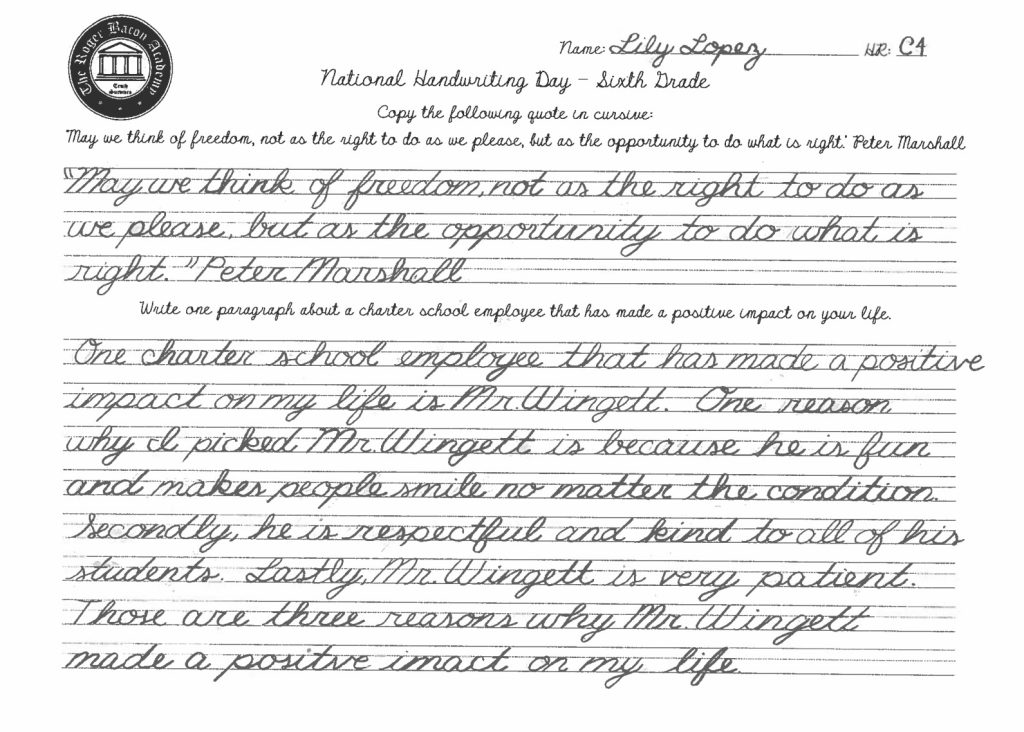 The Roger Bacon Academy
Truth
Survives
Name: Lily Lopez HR: C4
National Handwriting Day - Sixth Grade
Copy the following quote in cursive:
"May we think of freedom, not as the right to do as we please, but as the opportunity to do what is right." Peter Marshall
"May we think of freedom, not as the right to do as
we please, but as the opportunity to do what is
right." Peter Marshall
Write one paragraph about a charter school employee that has made a positive impact on your life.
One charter school employee that has made a positive
impact on my life is Mr. Wingett. One reason
why I picked Mr. Wingett is because he is fun
and makes people smile no matter the condition.
Secondly, he is respectful and kind to all of his
students. Lastly, Mr. Wingett is very patient.
Those are three reasons why Mr. Wingett
made a positive imact on my life.